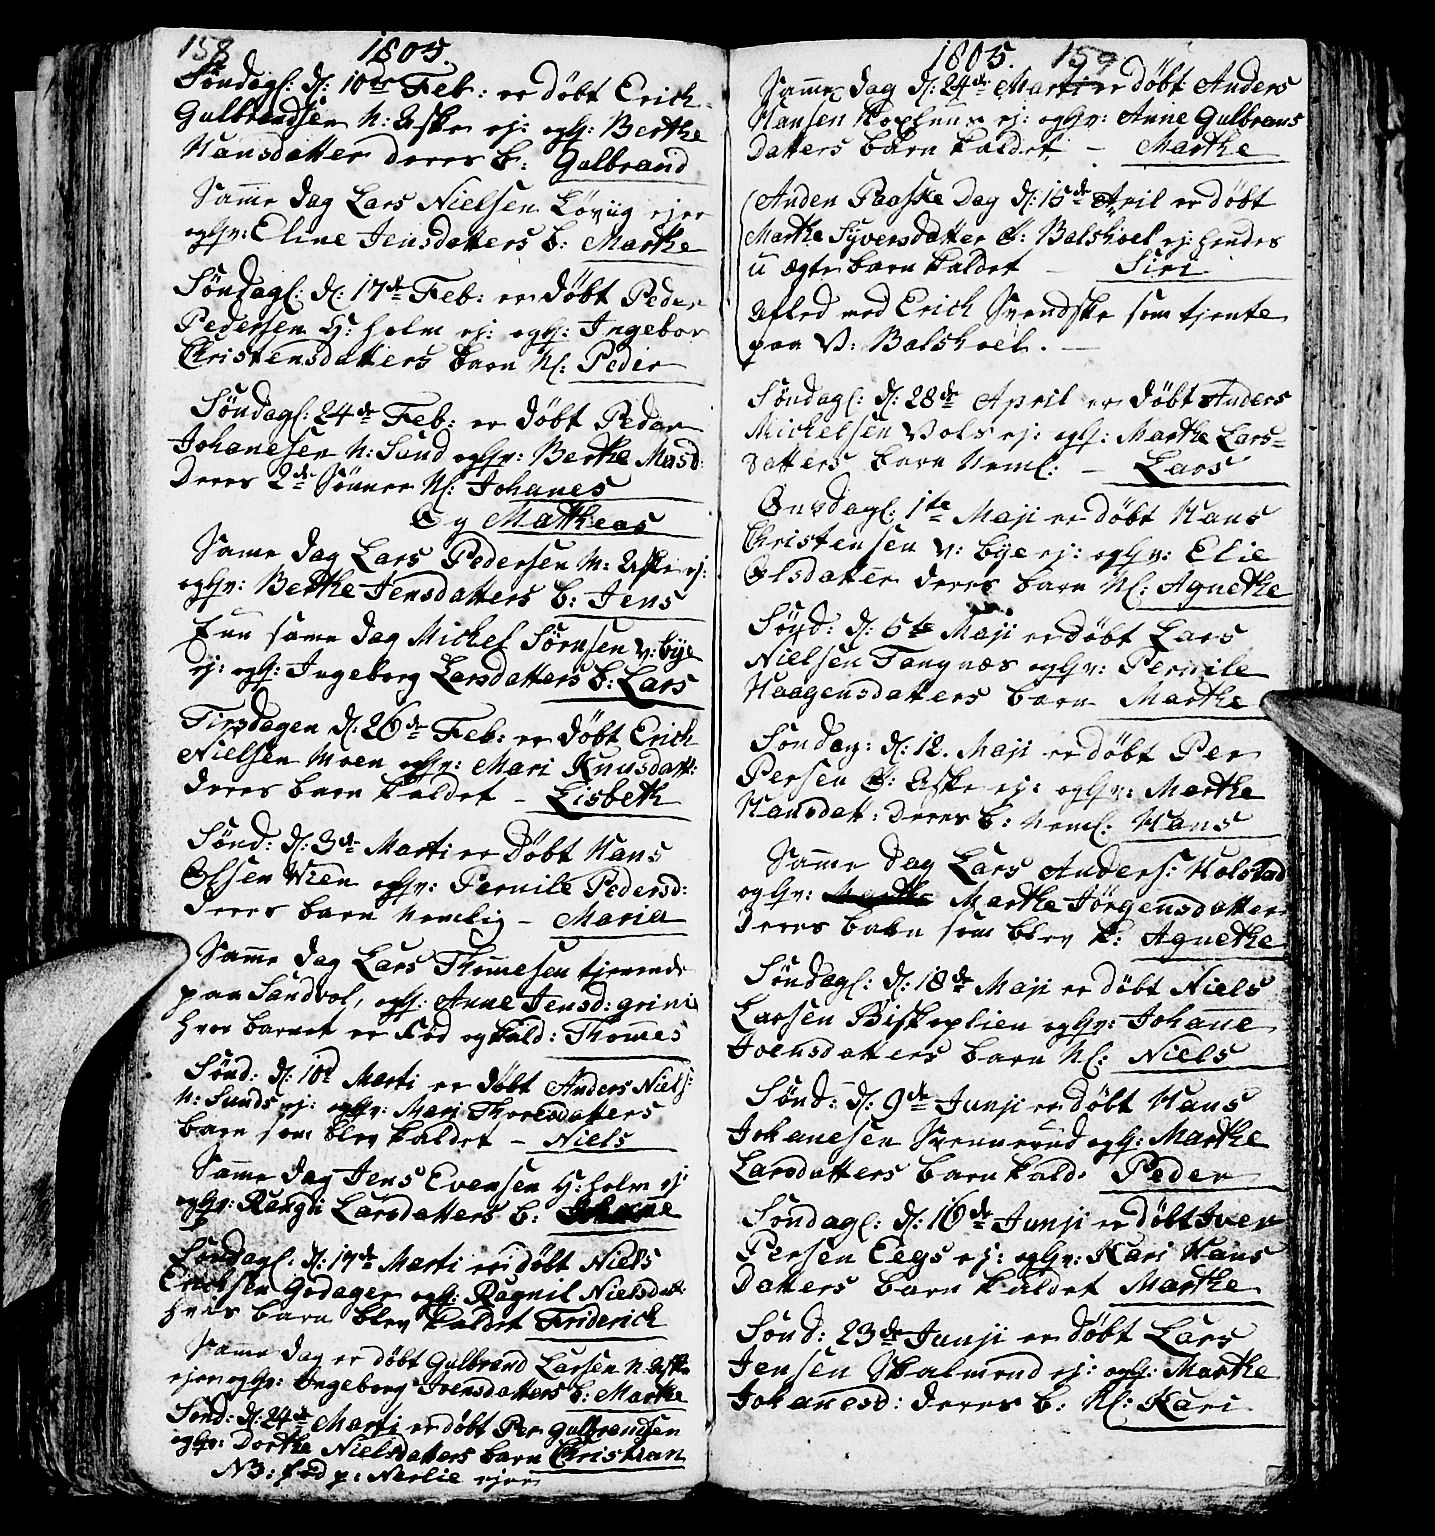 158 1805.
Søndagl: d: 10de Feb: er døbt Erich
Gulbrandsen N: Eske ej: oghs: Berthe
Hansdatter deres b: Gulbrand
Samme dag Lars Nielsen Løviig ejer
oghv: Eline Jensdatters b: Marthe
Søndagl: d: 17de Feb: er døbt Peder
Pedersen H: holm ej: oghs: Ingebor
Christensdatters barn Nl: Peder
Søndagl: 24de Feb: er døbt Peder
Johanesen N: Sund oghv: Berthe Masd:
deres 2de Sønner Nl: Johanes
Og Mattheas
Same dag Lars Pedersen N: Eske ej:
oghv: Berthe Jensdatters b: Jens
Enn same dag Michel Sørnsen v: bye
ej: oghs: Ingeborg Larsdatters b: Lars
Tirsdagen d: 26de Feb: er døbt Erich
Nielsen Moen oghv: Mari Knusdatt:
deres barn kaldet – Lisbeth
Sønd: d: 3de Marti er døbt Hans
Olsen Wien oghv: Pernile Pedersd:
deres barn Nemlig – Maria
Samme dag Lars Thomesen tjenende
paa Sandvol, oghs: Anne Jensd: grini
hvor barnet er Fød og kald: Thomes
Sønd: d: 10d Marti er døbt Anders Niels:
N: Sunds ej: oghv: Mari Thoresdatters
barn som blev kaldet – Niels
Samme dag Jens Evensen H: holm ej:
oghv: Rangni Larsdatters b: Johane
Søndagl: d: 17de Marti er døbt Niels
Erichsen Godager oghs: Ragnil Nielsdat:
hvis barn blev kaldet Friderich
Samme dag er døbt Gulbrand Larsen N: Eske
ejer oghv: Ingeborg Joensdatters b: Marthe
Sønd: d: 24de Marti er døbt Per Gulbrandsen
oghv: Dorthe Nielsdatters barn Christian
NB: fød p: Nerlie ejer
1805. 159
Samme dag d: 24de Marti er døbt Anders
Hansen Kophuus ej: oghv: Anne Gulbrans
datters barn kaldet – Marthe
Anden Paaske Dag d: 15de April er døbt
Marthe Syversdatter Ø: Balshoel ej: hendes
u ægte barn kaldet – Siri
Afled med Erich Svendske som tjente
paa V: Balshoel. –
Søndagl: d: 28de April er døbt Anders
Michelsen Vols ej: oghs: Marthe Lars=
datters barn Neml: – Lars
Onsdagl: 1te Maji er døbt Hans
Christensen v: bye ej: oghv: Elie
Olsdatter deres barn Nl: Agnethe
Sønd: d: 5te Maji er døbt Lars
Nielsen Tangnæs oghv: Pernile
Haagensdatters barn Marthe
Søndag: d: 12. Maji er døbt Per
Persen Ø: Eske ej: oghv: Marthe
Hansdatt: deres b: Neml: Hans
Samme dag Lars Anders: Holstad
oghv: Marthe Jørgensdatter
deres babn som blev k: Agnethe
Søndagl: d: 18de Maji er døbt Niels
Larsen Biskoplien oghv: Johane
Joensdatters barn Nl: Niels
Sønd: d: 9de Junji er døbt Hans
Johanesen Svennerud oghs: Marthe
Larsdatters barn kald: Peder
Søndagl: d: 16de Junji er døbt Iver
Persen Eegs ej: oghv: Kari Hans
datters barn kaldet Marthe
Sønd: 23de Junji er døbt Lars
Jensen Skalmerud ej: oghs: Marthe
Johanesd: deres b. Nl: Kari